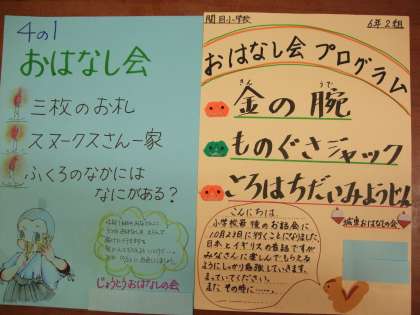 4の1
おはなし会
三枚のお札
スヌークスさん一家
ふくろのなかには
なにがある？
じょうとうおはなしの会
関目小学校
6年2組
おはなし会 プログラム
きん うで
金の腕
ものぐさジャック
ころはちだいみょうじん
城東おはなしの会
こんにちは。
小学校最後のお話会に
10月23日に行くことになりました。
日本とイギリスの昔話ですが
みなさんに楽しんでもらえる
ようにしっかり勉強していきます。
まっていてください。
また、その時に……。